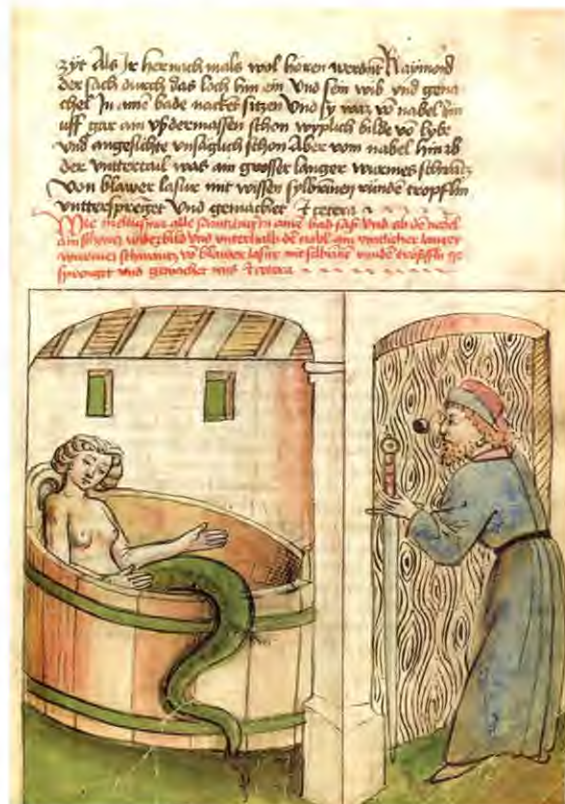 zyt Als Ir hernach mals wol hören werdent Raymond
der sach durch das loch hin ein Und sein wib und gena
chel In ainē bade nacket sitzen Und sy waz vō nabel hin
uff gar ain uß dermassen schon wyplich bilde vō lybe
und angesichte unsäglich schon Aber vom nabel hin ab
der untertail was ain grosser langer wurmes schwantz
Von blawer lasure mit wissen sylbrinen runden tropflin
untterspreget Und gemachet Et cetera
Wie melusina alle samstag in ainē bad saß Und ob dē nabel
ain schones wibes bild und unterhalb dē nabl ain langer
wurmes schwantz vō blawer lasure mit silbrinē runden tropflin ge
sprenget und gemachet was Et cetera